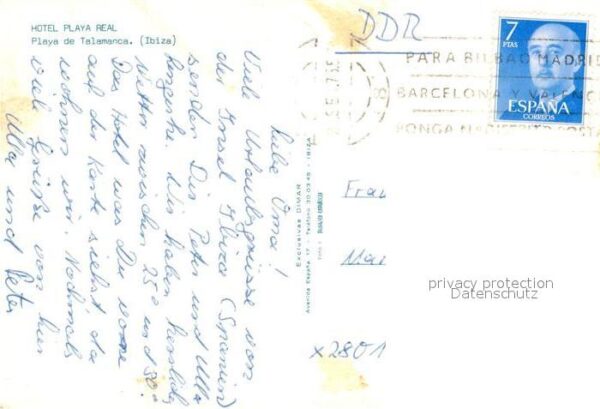 HOTEL PLAYA REAL
Playa de Talamanca. (Ibiza)
Liebe Oma!
Viele Urlaubsgrüsse von
der Insel Ibiza (Spanien)
senden Dir Peter und Ulla
Wir haben herrliches
Wetter zwischen 25° und 30°.
Das Hotel was Du vorne
auf der Karte siehst da
wohnen wir. Nochmals
viele Grüße von hier
Ulla und Peter
Exclusivas DIMAR
DDR
7
PTAS
ESPAÑA
CORREOS
PARA BILBAO MADRID
BARCELONA Y VALENC
PONGA
Frau
privacy protection
Datenschutz
x2801